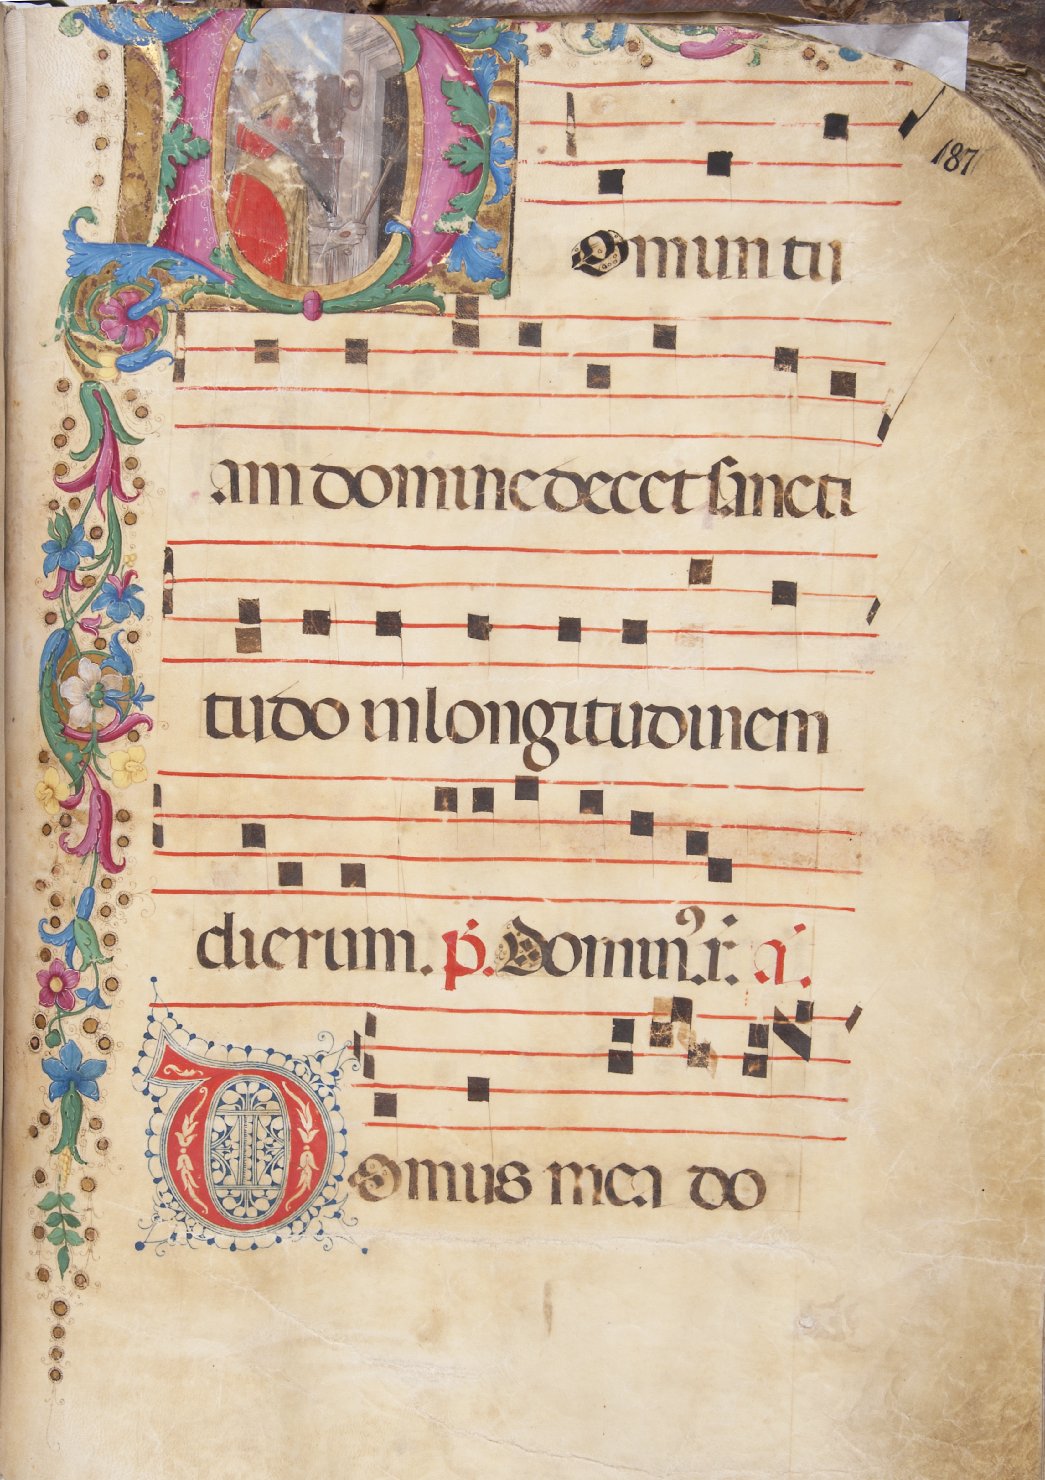 187
Domum tu
am domine decet sancti
tudo in longitudinem
dierum. p̄. Dominꝰ. r̄. a̅.
Domus mea do